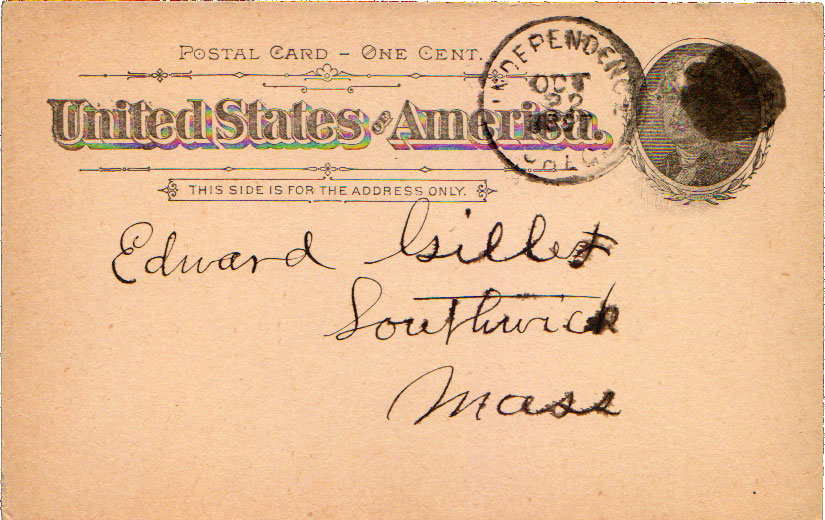 POSTAL CARD – ONE CENT.
United States of America.
THIS SIDE IS FOR THE ADDRESS ONLY.
INDEPENDENCE
OCT
22
COLO.
Edward Gillet
Southwick
Mass